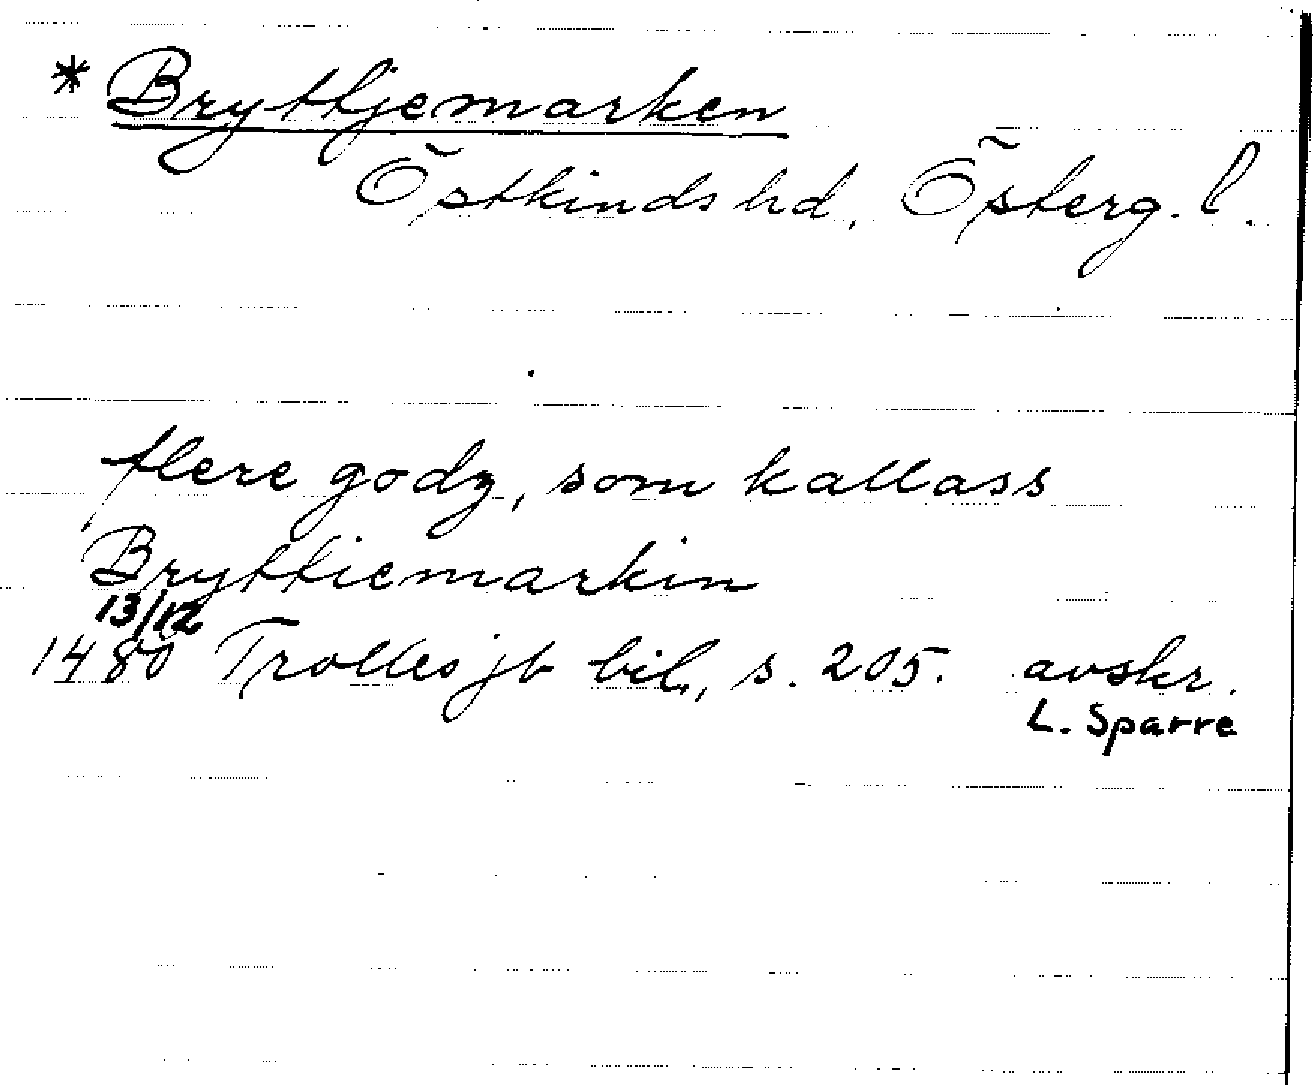 * Bryttjemarken
Östkinds hd, Österg. l.
flere godz, som kallass
Bryttiemarkin
13/12
1480 Trolles jb bil, s. 205. avskr.
L. Sparre